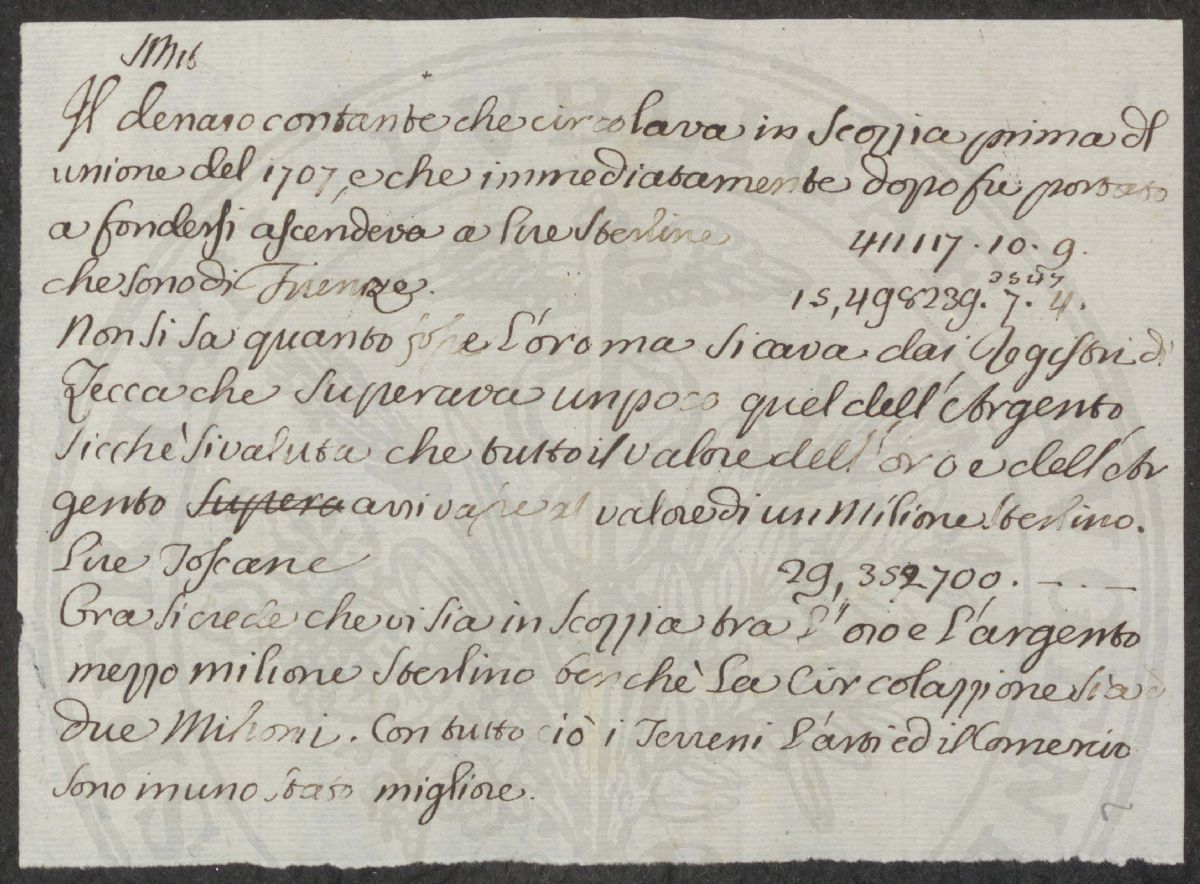 Smib
Il denaro contante che circolava in Scozzia prima dl
unione del 1707, e che immediatamente dopo fu portato
a fondersi ascendeva a lire Sterline 411117. 10. 9.
che sono di Firenze. 15,498239. 7. 4.
Non si sa quanto fosse l'oro ma si cava dai Registri di
Zecca che superava un poco quel dell'Argento
sicchè si valuta che tutto il valore dell'oro e dell'Ar
gento supera arrivasse al valore di un Milione Sterlino.
Lire Toscane 29,352700. — . —
Ora si crede che vi sia in Scozzia tra l'oro e l'argento
mezzo milione Sterlino benchè la Circolazzione sia di
due Milioni. Con tutto ciò i Terreni l'arti ed il Comercio
sono in uno stato migliore.